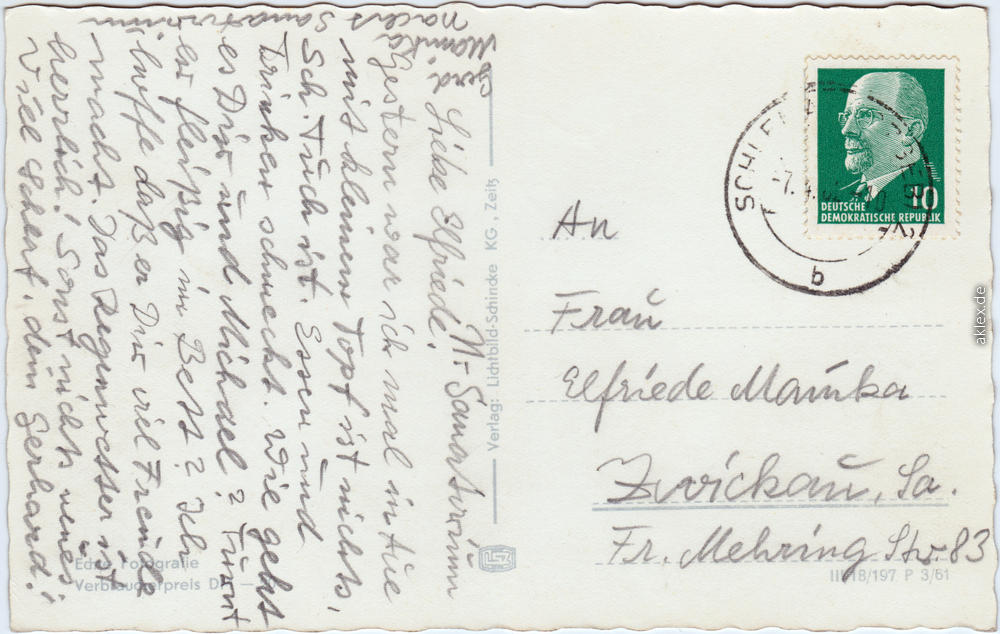 N-Sanatorium
Liebe Elfriede!
Gestern war ich mal in Aue
mit kleinem Topf ist nichts,
Sch. Tuch ist. Essen und
Trinken schmeckt. Wie geht
es Dir und Michael? Turnt
er fleißig im Bett? Ich
hoffe daß er Dir viel Freude
macht. Das Regenwetter ist
herrlich! Sonst nichts neues
viele
dein Gerhard!
Gerd.
Mamka
Sanatorium
Verlag: Lichtbild-Schincke KG, Zeitz
Echte Fotografie
Verbraucherpreis D
DEUTSCHE
DEMOKRATISCHE REPUBLIK
10
SCHLEMA
b
An
Frau
Elfriede Mamka
Zwickau, Sa.
Fr. Mehring Str. 83
III/18/197 P 3/61
aklex.de